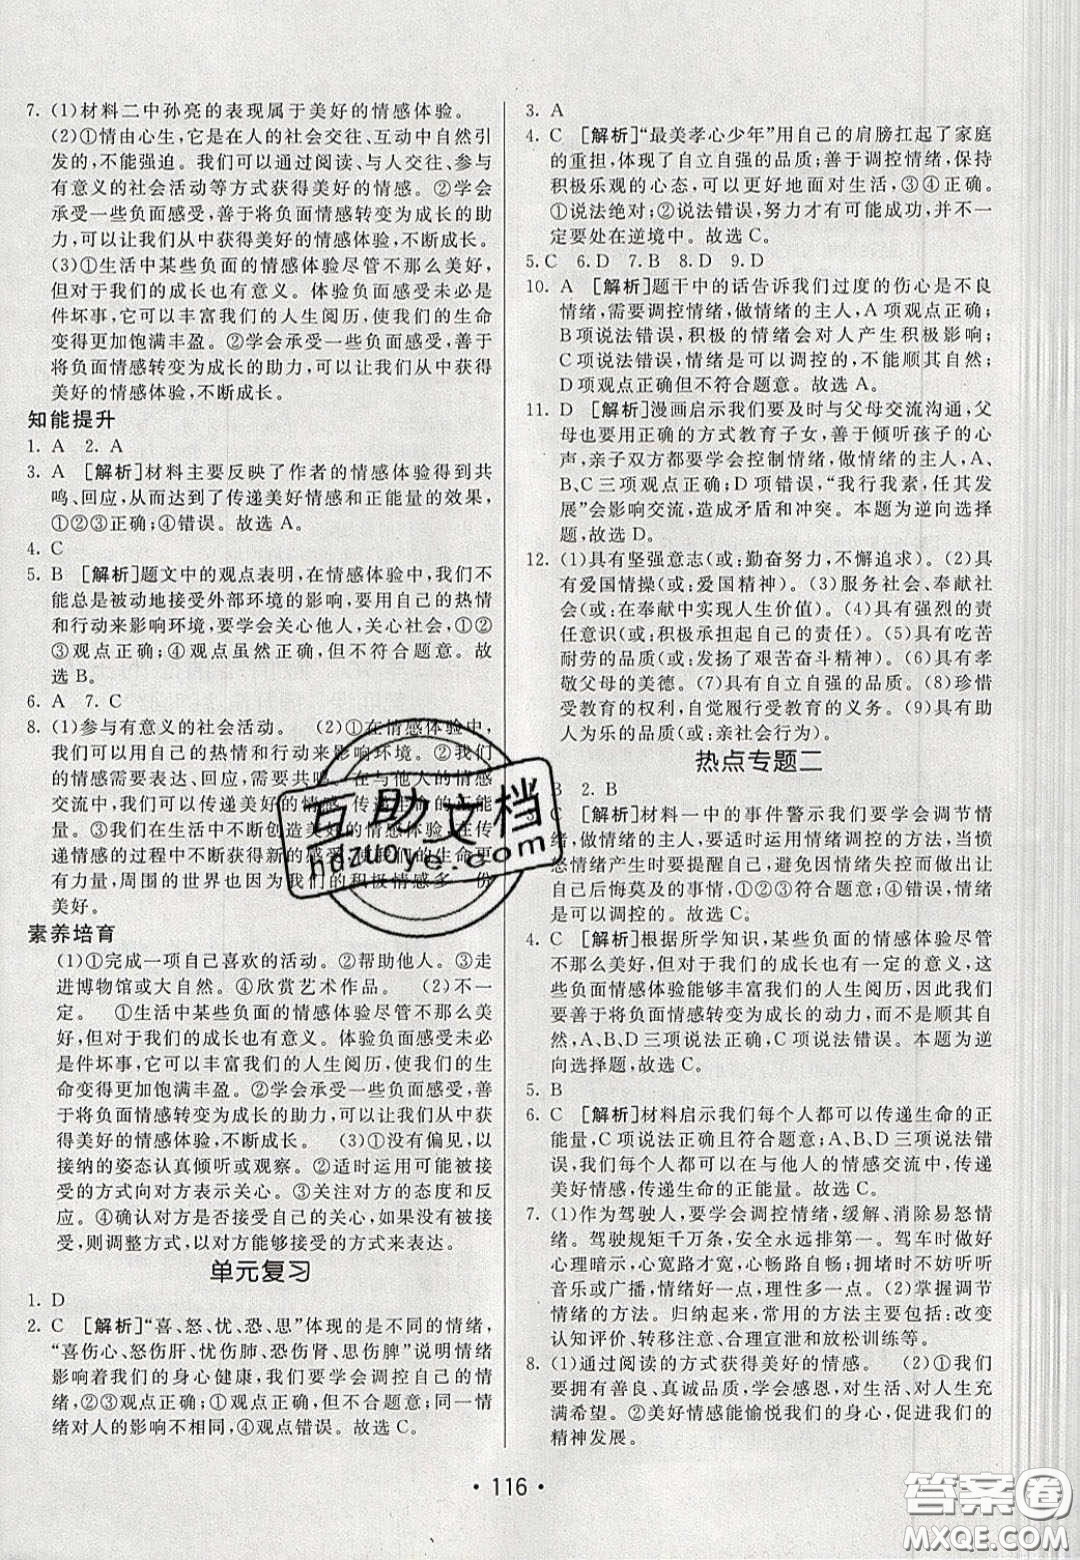 7. (1)材料二中孙亮的表现属于美好的情感体验。
(2)①情由心生,它是在人的社会交往、互动中自然引
发的,不能强迫。我们可以通过阅读、与人交往、参与
有意义的社会活动等方式获得美好的情感。②学会
承受一些负面感受,善于将负面情感转变为成长的助
力,可以让我们从中获得美好的情感体验,不断成长。
(3)①生活中某些负面的情感体验尽管不那么美好,
但对于我们的成长也有意义。体验负面感受未必是
件坏事,它可以丰富我们的人生阅历,使我们的生命
变得更加饱满丰盈。②学会承受一些负面感受,善于
将负面情感转变为成长的助力,可以让我们从中获得
美好的情感体验,不断成长。
知能提升
1. A  2. A
3. A [解析]材料主要反映了作者的情感体验得到共
鸣、回应,从而达到了传递美好情感和正能量的效果,
①②③正确;④错误。故选A。
4. C
5. B [解析]题文中的观点表明,在情感体验中,我们不
能总是被动地接受外部环境的影响,要用自己的热情
和行动来影响环境,要学会关心他人,关心社会,①②
③观点正确;④观点虽然正确,但不符合题意。故
选B。
6. A  7. C
8. (1)参与有意义的社会活动。 (2)①在情感体验中,
我们可以用自己的热情和行动来影响环境。②我们
的情感需要表达、回应,需要共鸣。在与他人的情感
交流中,我们可以传递美好的情感,传递生命的正能
量。③我们在生活中不断创造美好的情感体验,在传
递情感的过程中不断获得新的感受,使我们的生命更
有力量,周围的世界也因为我们的积极情感多一份
美好。
素养培育
(1)①完成一项自己喜欢的活动。②帮助他人。③走
进博物馆或大自然。④欣赏艺术作品。 (2)不一
定。 ①生活中某些负面的情感体验尽管不那么美
好,但对于我们的成长也有意义。体验负面感受未必
是件坏事,它可以丰富我们的人生阅历,使我们的生
命变得更加饱满丰盈。②学会承受一些负面感受,善
于将负面情感转变为成长的助力,可以让我们从中获
得美好的情感体验,不断成长。 (3)①没有偏见,以
接纳的姿态认真倾听或观察。②适时运用可能被接
受的方式向对方表示关心。③关注对方的态度和反
应。④确认对方是否接受自己的关心,如果没有被接
受,则调整方式,以对方能够接受的方式来表达。
单元复习
1. D
2. C [解析]“喜、怒、忧、恐、思”体现的是不同的情绪,
“喜伤心、怒伤肝、忧伤肺、恐伤肾、思伤脾”说明情绪
影响着我们的身心健康,我们要学会调控自己的情
绪,②③正确;①观点正确,但不合题意;④同一种情
绪对人的影响不相同,④观点错误。故选C。
3. A
4. C [解析]“最美孝心少年”用自己的肩膀扛起了家庭
的重担,体现了自立自强的品质;善于调控情绪,保持
积极乐观的心态,可以更好地面对生活,③④正确。
①说法绝对;②说法错误,努力才有可能成功,并不一
定要处在逆境中。故选C。
5. C  6. D  7. B  8. D  9. D
10. A [解析]题干中的话告诉我们过度的伤心是不良
情绪,需要调控情绪,做情绪的主人,A项观点正确;
B项说法错误,积极的情绪会对人产生积极影响;
C项说法错误,情绪是可以调控的,不能顺其自然;
D项观点正确但不符合题意。故选A。
11. D [解析]漫画启示我们要及时与父母交流沟通,父
母也要用正确的方式教育子女,善于倾听孩子的心
声,亲子双方都要学会控制情绪,做情绪的主人,A、
B、C三项观点正确;D项错误,“我行我素,任其发
展”会影响交流,造成矛盾和冲突。本题为逆向选择
题,故选D。
12. (1)具有坚强意志(或:勤奋努力,不懈追求)。(2)具
有爱国情操(或:爱国精神)。(3)服务社会、奉献社
会(或:在奉献中实现人生价值)。(4)具有强烈的责
任意识(或:积极承担起自己的责任)。(5)具有吃苦
耐劳的品质(或:发扬了艰苦奋斗精神)。(6)具有孝
敬父母的美德。(7)具有自立自强的品质。(8)珍惜
受教育的权利,自觉履行受教育的义务。(9)具有助
人为乐的品质(或:亲社会行为)。
热点专题二
B  2. B
C [解析]材料一中的事件警示我们要学会调节情
绪,做情绪的主人,要适时运用情绪调控的方法,当愤
怒情绪产生时要提醒自己,避免因情绪失控而做出让
自己后悔莫及的事情,①②③符合题意;④错误,情绪
是可以调控的。故选C。
4. C [解析]根据所学知识,某些负面的情感体验尽管
不那么美好,但对于我们的成长也有一定的意义,这
些负面情感体验能够丰富我们的人生阅历,因此我们
要善于将负面情感转变为成长的动力,而不能一味地
逃避,A、B、D三项说法正确,C项说法错误。本题为逆
向选择题,故选C。
5. B
6. C [解析]材料启示我们每个人都可以传递生命的正
能量,C项说法正确且符合题意;A、B、D三项说法错
误,我们每个人都可以在与他人的情感交流中,传递
美好情感,传递生命的正能量。故选C。
7. (1)作为驾驶人,要学会调控情绪,缓解、消除易怒情
绪。驾驶规定千万条,安全出行第一。驾车时做好
心理暗示,心宽路才宽,心平路更平;拥堵时不妨听听
音乐或广播,情绪好一点,理性多一点。(2)掌握调节
情绪的方法。归纳起来,常用的方法主要包括:改变
认知评价、转移注意、合理宣泄和放松训练等。
8. (1)通过阅读的方式获得美好的情感。 (2)①我们
要拥有善良、真诚的品质,学会感恩,对生活、对人生
充满希望。②美好情感能愉悦我们的身心,促进我们的
精神发展。
· 116 ·
互助文档
hdzuoye.com
答案圈
MXQE.COM